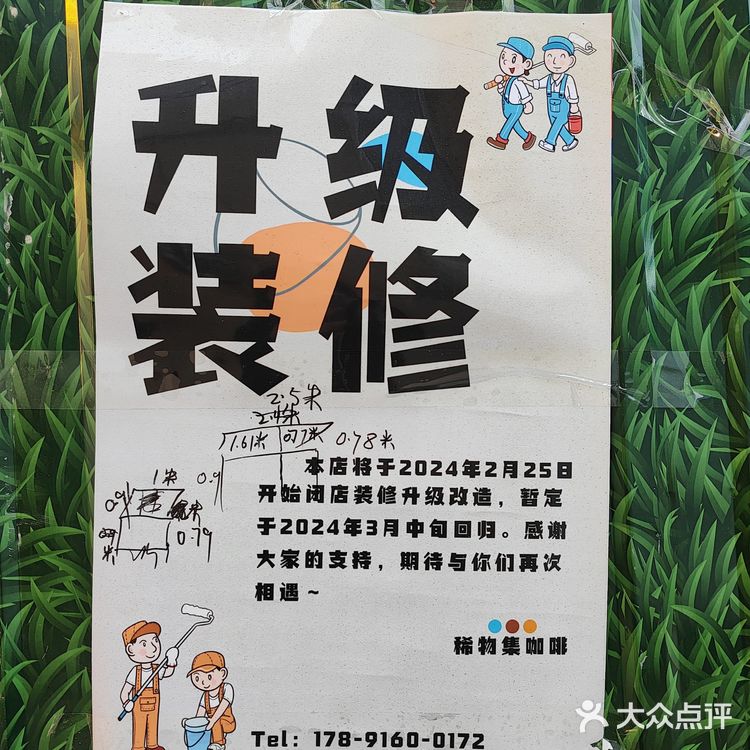 升级
装修
2.5米
1.61米 0.77米 0.78米
0.9
1米
0.9
0.79
本店将于2024年2月25日
开始闭店装修升级改造，暂定
于2024年3月中旬回归。感谢
大家的支持，期待与你们再次
相遇~
稀物集咖啡
Tel: 178-9160-0172
大众点评